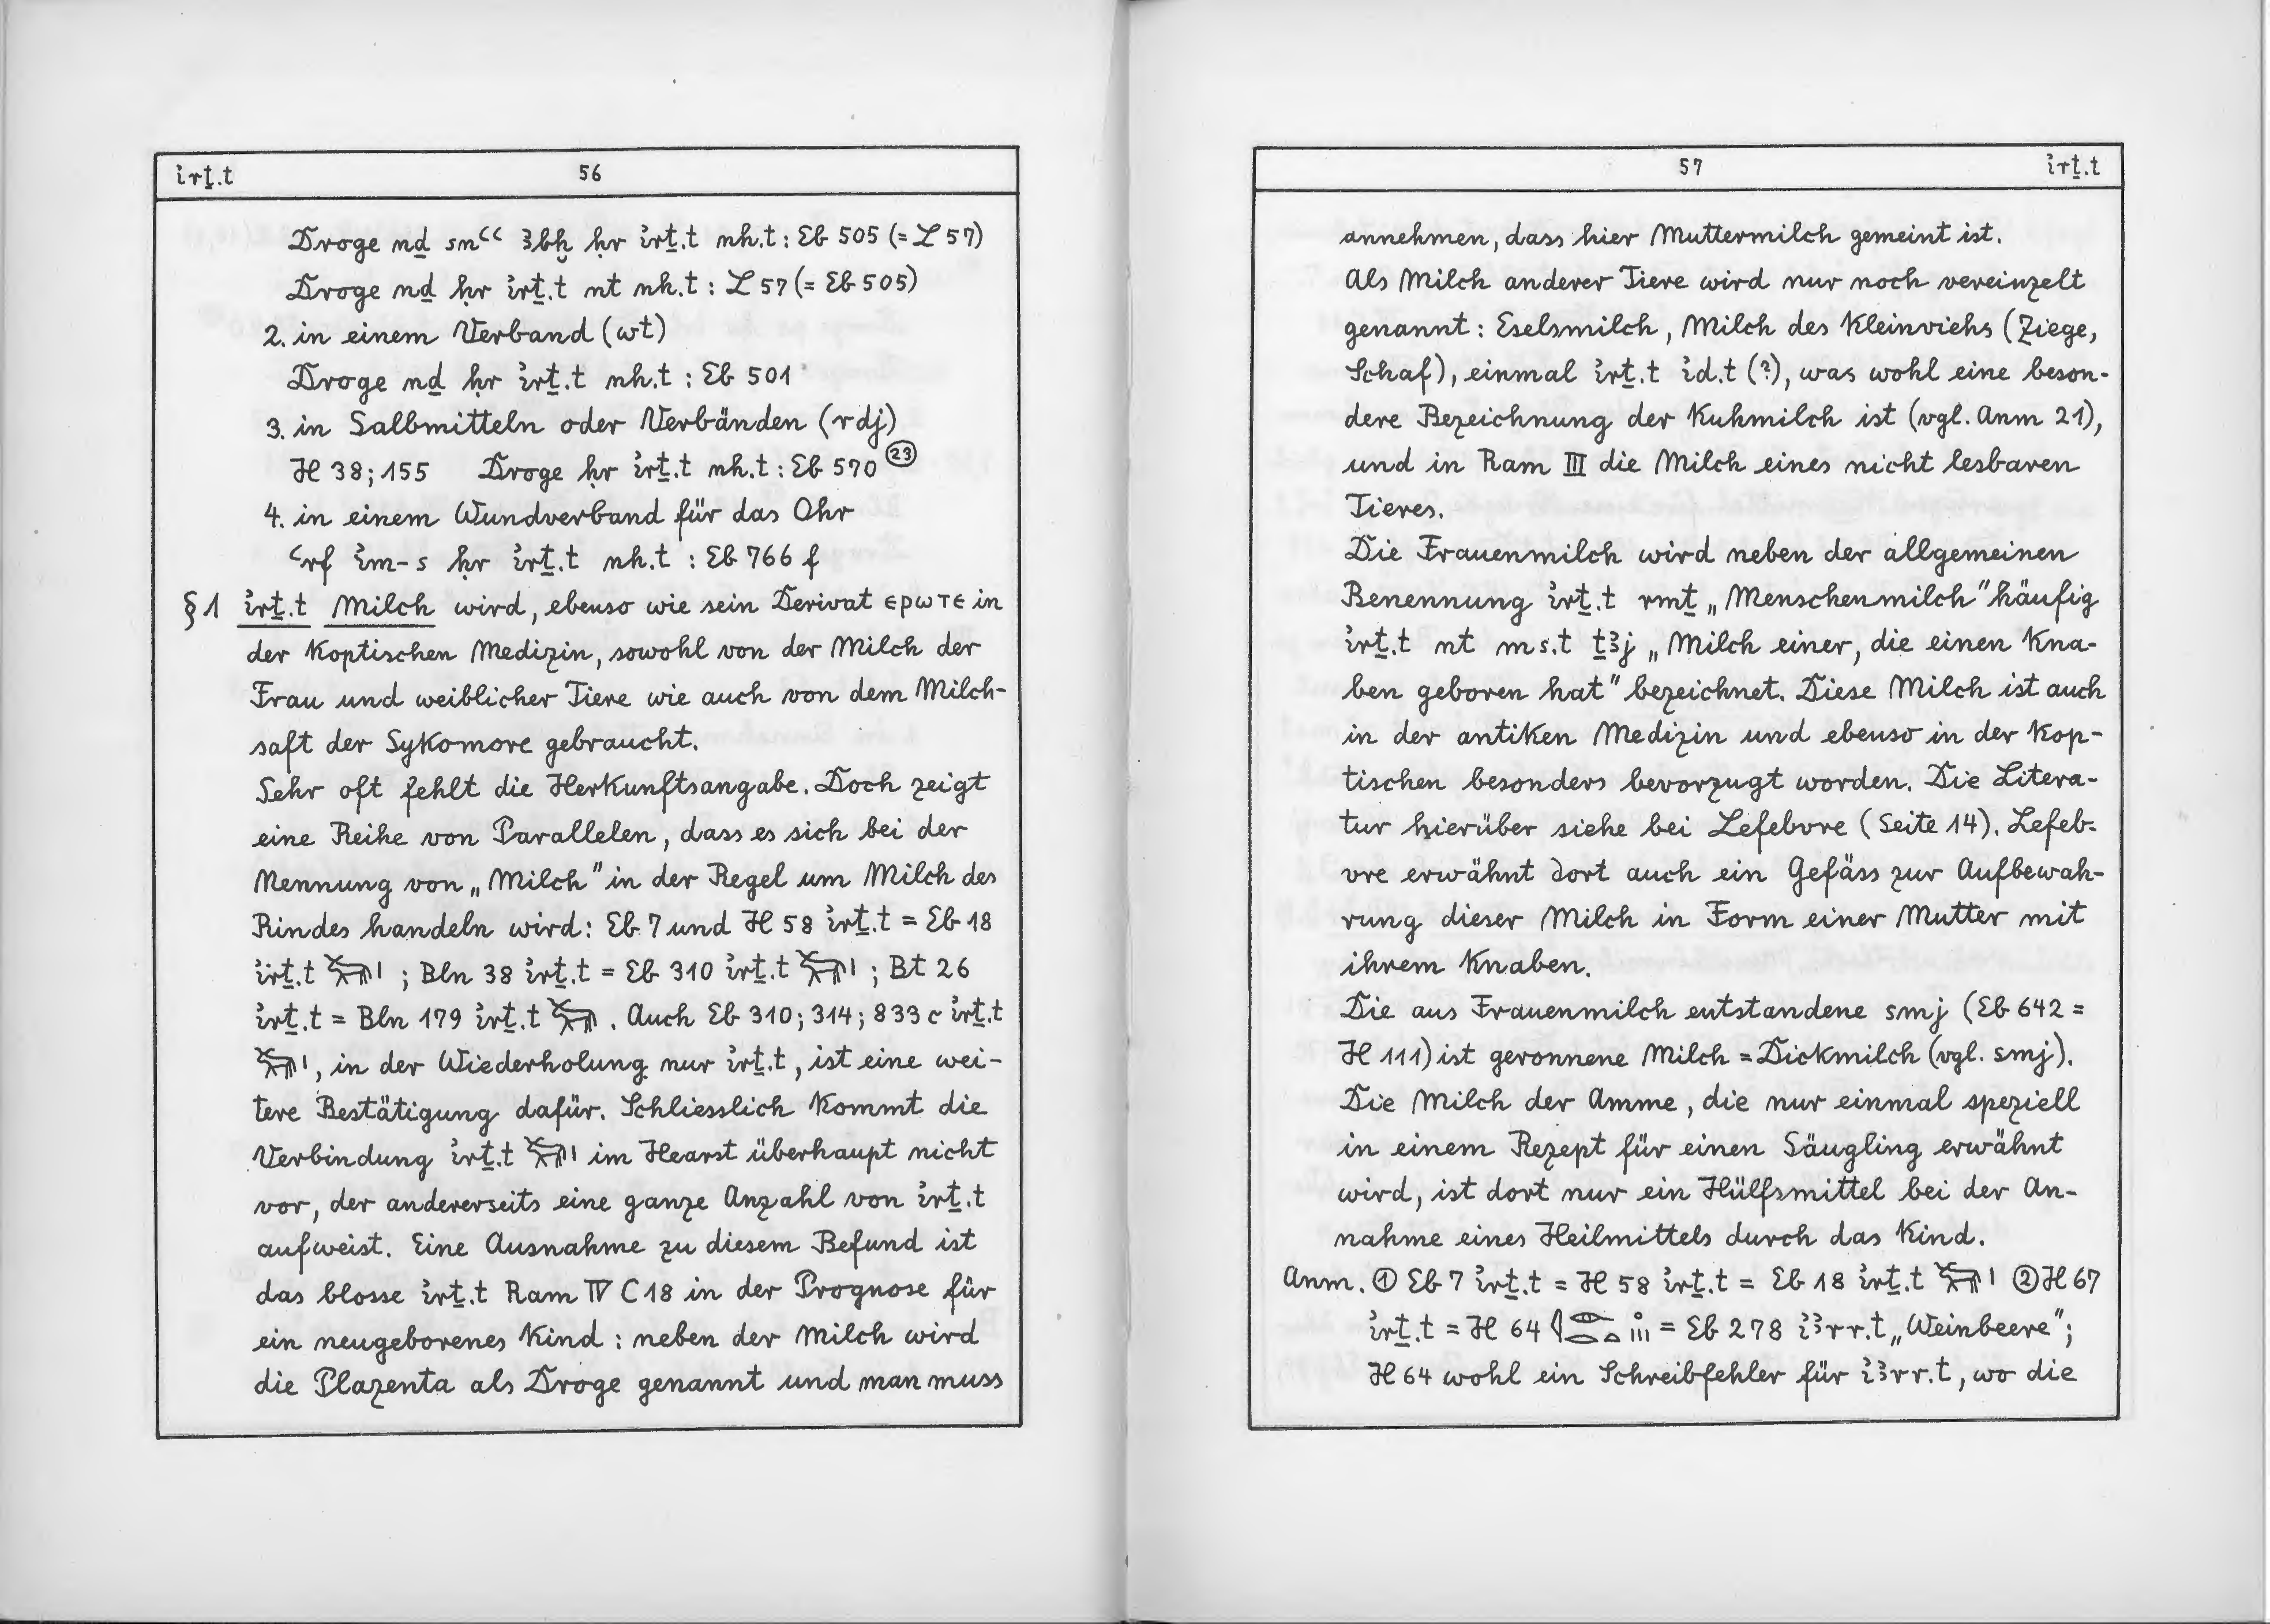 irṯ.t 56
Droge nḏ snꜥꜥ ꜣbḫ ḥr irṯ.t nh.t : Eb 505 (= L 57)
Droge nḏ ḥr irṯ.t nt nh.t : L 57 (= Eb 505)
2. in einem Verband (wt)
Droge nḏ ḥr irṯ.t nh.t : Eb 501
3. in Salbmitteln oder Verbänden (rdj)
H 38; 155 Droge ḥr irṯ.t nh.t : Eb 570 ㉓
4. in einem Wundverband für das Ohr
ꜥrf im-s ḥr irṯ.t nh.t : Eb 766 f
§ 1 irṯ.t Milch wird, ebenso wie sein Derivat ⲉⲣⲱⲧⲉ in
der Koptischen Medizin, sowohl von der Milch der
Frau und weiblicher Tiere wie auch von dem Milch-
saft der Sykomore gebraucht.
Sehr oft fehlt die Herkunftsangabe. Doch zeigt
eine Reihe von Parallelen, dass es sich bei der
Nennung von „Milch" in der Regel um Milch des
Rindes handeln wird: Eb 7 und H 58 irṯ.t = Eb 18
irṯ.t 𓃒𓏤 ; Bln 38 irṯ.t = Eb 310 irṯ.t 𓃒𓏤 ; Bt 26
irṯ.t = Bln 179 irṯ.t 𓃒 . Auch Eb 310; 314; 833 c irṯ.t
𓃒𓏤, in der Wiederholung nur irṯ.t, ist eine wei-
tere Bestätigung dafür. Schliesslich kommt die
Verbindung irṯ.t 𓃒𓏤 im Hearst überhaupt nicht
vor, der andererseits eine ganze Anzahl von irṯ.t
aufweist. Eine Ausnahme zu diesem Befund ist
das blosse irṯ.t Ram IV C 18 in der Prognose für
ein neugeborenes Kind : neben der Milch wird
die Plazenta als Droge genannt und man muss
57 irṯ.t
annehmen, dass hier Muttermilch gemeint ist.
Als Milch anderer Tiere wird nur noch vereinzelt
genannt : Eselsmilch, Milch des Kleinviehs (Ziege,
Schaf), einmal irṯ.t id.t (?), was wohl eine beson-
dere Bezeichnung der Kuhmilch ist (vgl. Anm 21),
und in Ram III die Milch eines nicht lesbaren
Tieres.
Die Frauenmilch wird neben der allgemeinen
Benennung irṯ.t rmṯ „Menschenmilch" häufig
irṯ.t nt ms.t ṯꜣj „Milch einer, die einen Kna-
ben geboren hat" bezeichnet. Diese Milch ist auch
in der antiken Medizin und ebenso in der Kop-
tischen besonders bevorzugt worden. Die Litera-
tur hierüber siehe bei Lefebvre (Seite 14). Lefeb-
vre erwähnt dort auch ein Gefäss zur Aufbewah-
rung dieser Milch in Form einer Mutter mit
ihrem Knaben.
Die aus Frauenmilch entstandene smj (Eb 642 =
H 111) ist geronnene Milch = Dickmilch (vgl. smj).
Die Milch der Amme, die nur einmal speziell
in einem Rezept für einen Säugling erwähnt
wird, ist dort nur ein Hülfsmittel bei der An-
nahme eines Heilmittels durch das Kind.
Anm. ① Eb 7 irṯ.t = H 58 irṯ.t = Eb 18 irṯ.t 𓃒𓏤 ② H 67
irṯ.t = H 64 = Eb 278 iꜣrr.t „Weinbeere";
H 64 wohl ein Schreibfehler für iꜣrr.t, wo die